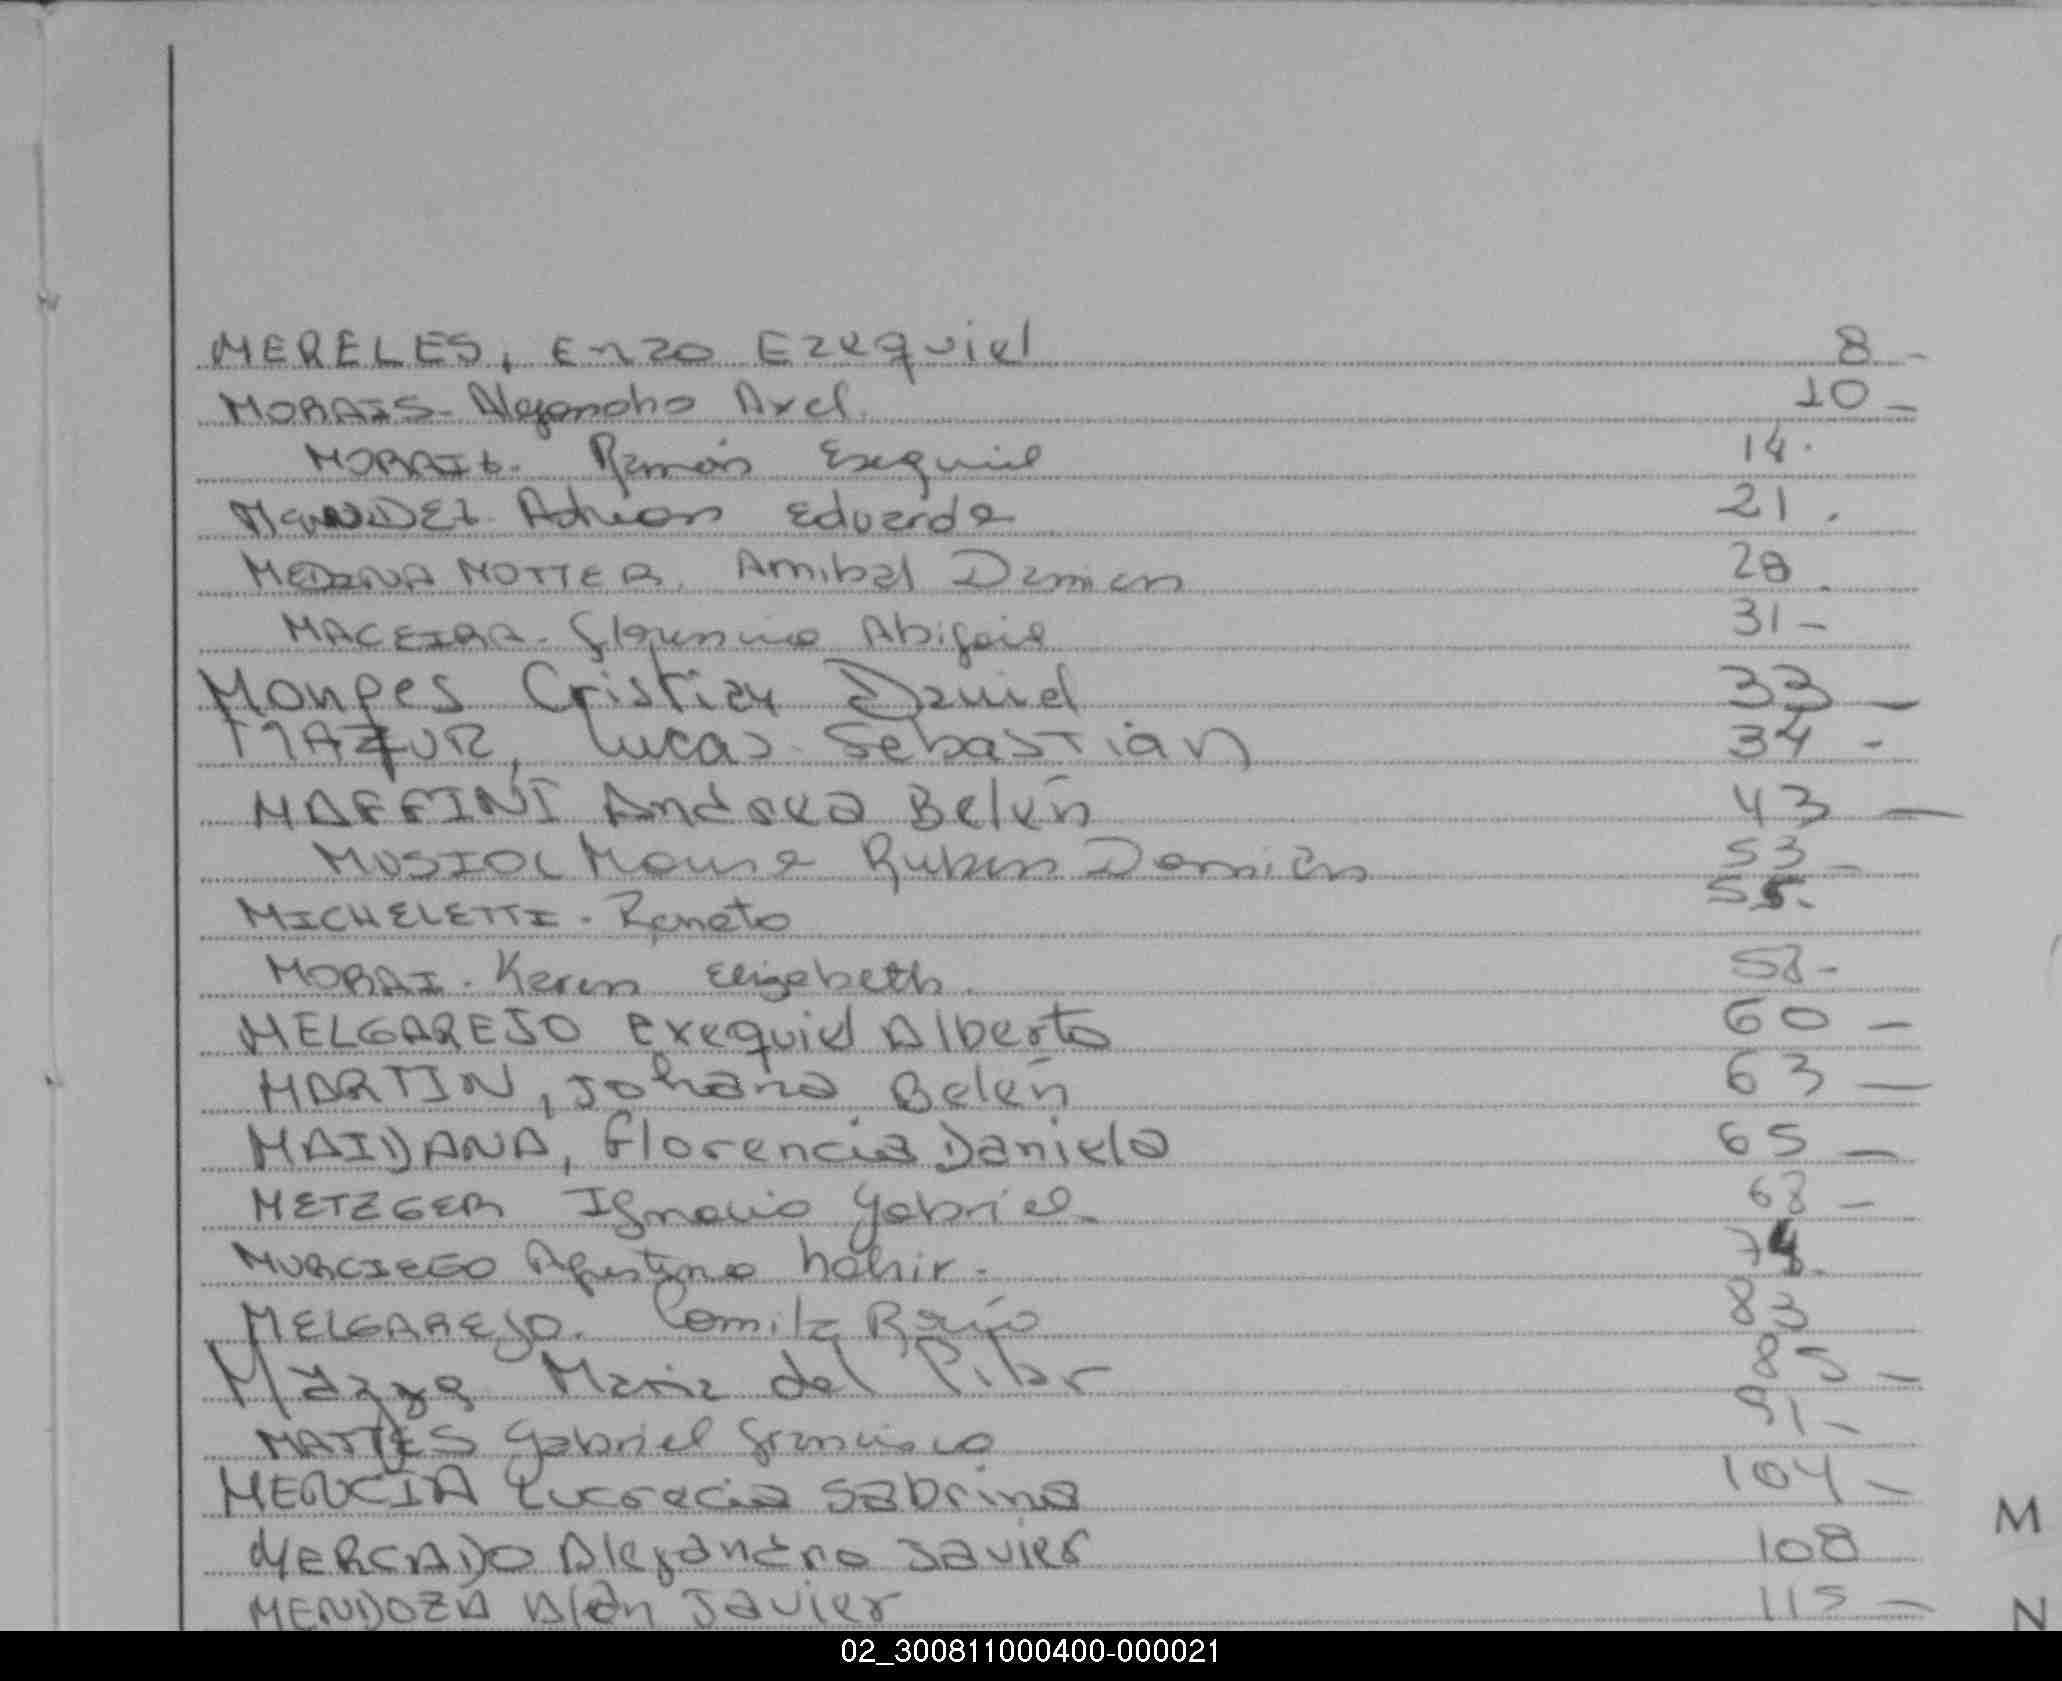 MERELES, Enzo Ezequiel 8 -
MORAIS - Alejandro Axel. 10 -
MORAIS. Ramón Exequiel 14.
MENDEZ Adrian Eduardo 21.
MEDINA MOTTER. Anibal Damian 28.
MACEIRA - Florencia Abigail 31 -
Monges Cristian Daniel 33 -
MAZUR, Lucas Sebastián 34 -
MAFFINI Andrea Belén 43 -
MUSIOL Ruben Damian 53 -
MICHELETTI - Renato 55 -
MORAI - Karen Elizabeth. 58 -
MELGAREJO Exequiel Alberto 60 -
MARTIN, Johana Belén 63 -
MAIDANA, Florencia Daniela 65 -
METZGER Ignacio Gabriel - 68 -
MURCIEGO Agustina Nahir. 74.
MELGAREJO. Camila Rocío 83
Mazza Maria del Pilar 85 -
MATTES Gabriel Francisco 91 -
MENCIA Lucrecia Sabrina 104 -
M
MERCADO Alejandro Javier 108
MENDOZA Alan Javier 115 -
N
02_300811000400-000021